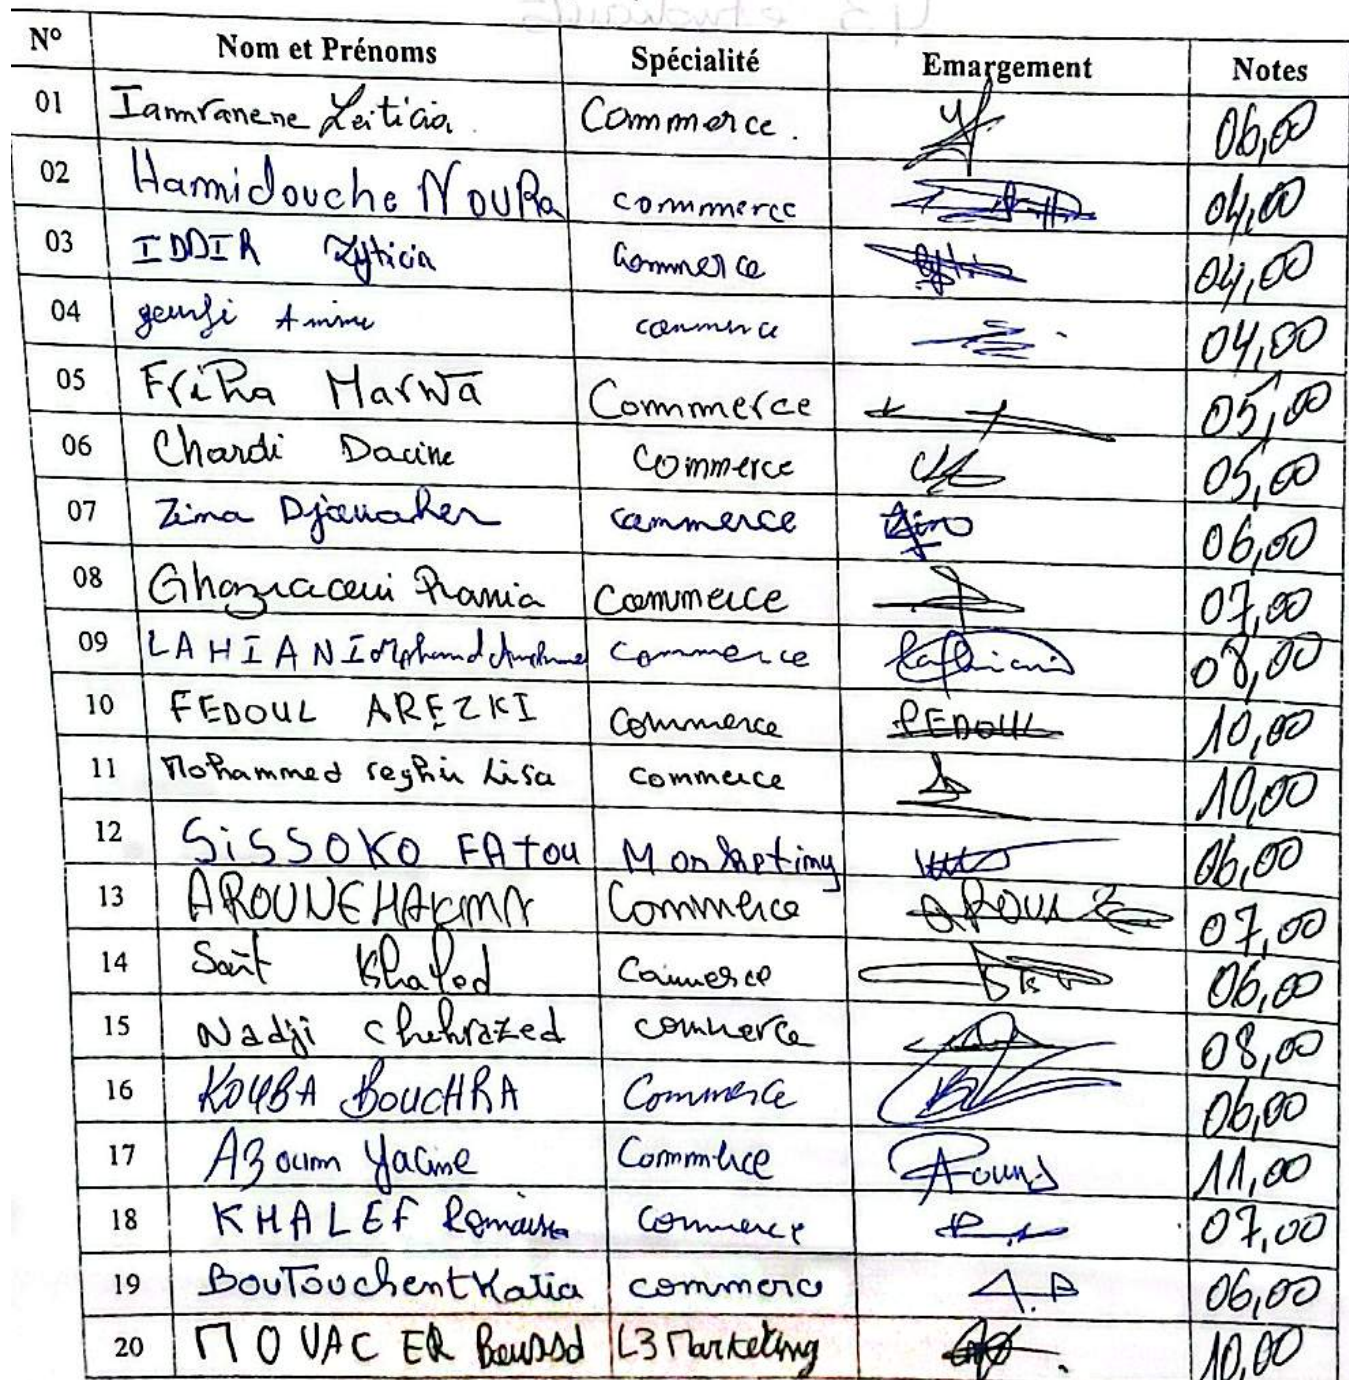 N° Nom et Prénoms Spécialité Emargement Notes
01 Iamranene Leiticia. Commerce. 06,00
02 Hamidouche NouRa commerce 04,00
03 IDDIR Lyticia Commerce 04,00
04 commerce 04,00
05 FriHa Marwa Commerce 05,00
06 Chardi Dacine Commerce 05,00
07 Zima Djawaher commerce 06,00
08 Rania Commerce 07,00
09 LAHIANI commerce 08,00
10 FEDOUL AREZKI Commerce FEDOUL 10,00
11 Mohammed seghir Lisa commerce 10,00
12 SiSSOKO FATOU Marketing 06,00
13 AROUNE HAKIMA Commerce 07,00
14 Sait Khaled Commerce 06,00
15 Nadji Chehrazed commerce 08,00
16 KOUBA BOUCHRA Commerce 06,00
17 Azoum Yacine Commerce 11,00
18 KHALEF Romaissa Commerce 07,00
19 BouTouchent Katia commerce A.B 06,00
20 MOUACER L3 Marketing 10,00